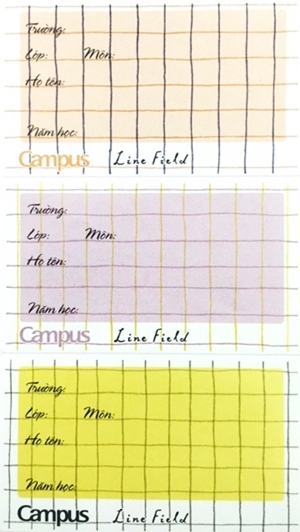 Trường:
Lớp: Môn:
Họ tên:
Năm học:
Campus Line Field
Trường:
Lớp: Môn:
Họ tên:
Năm học:
Campus Line Field
Trường:
Lớp: Môn:
Họ tên:
Năm học:
Campus Line Field